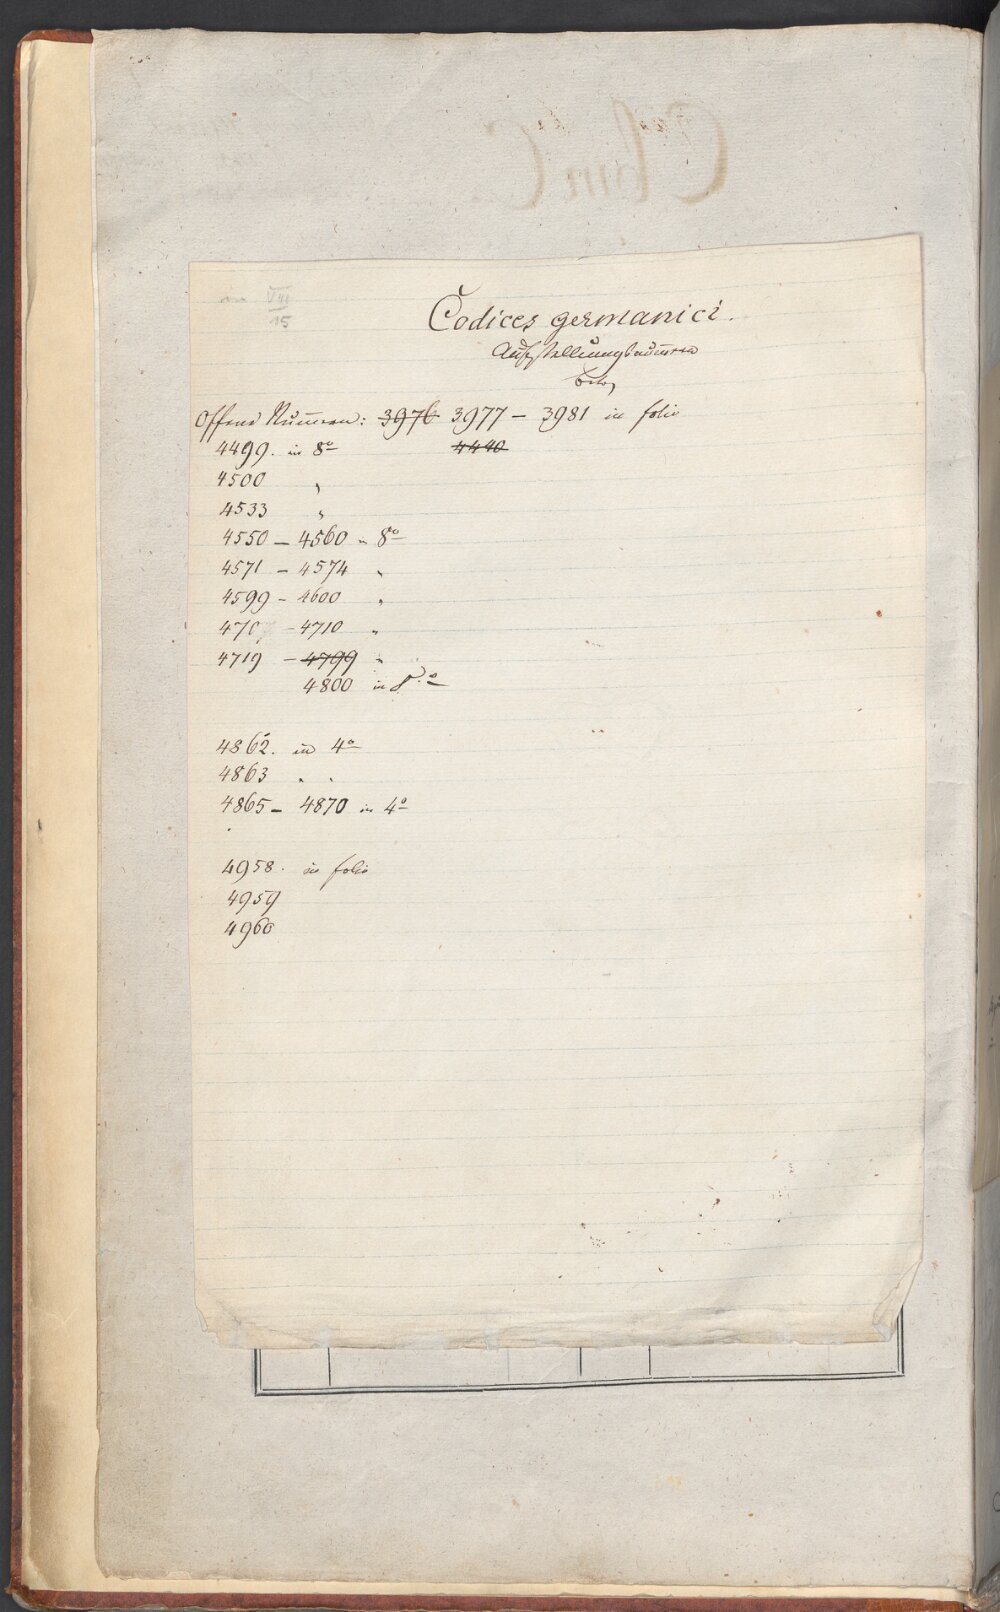 VIII
15
Codices germanici.
Aufstellungsnum̅ern
Offene Num̅ern: 3976 3977 – 3981 in folio
4499. in 8o 4440
4500 "
4533 "
4550 – 4560 " 8o
4571 – 4574 "
4599 – 4600 "
– 4710 "
4719 – 4799 "
4800 in 8o
4862. in 4o
4863 " "
4865 – 4870 in 4o
4958. in folio
4959
4960